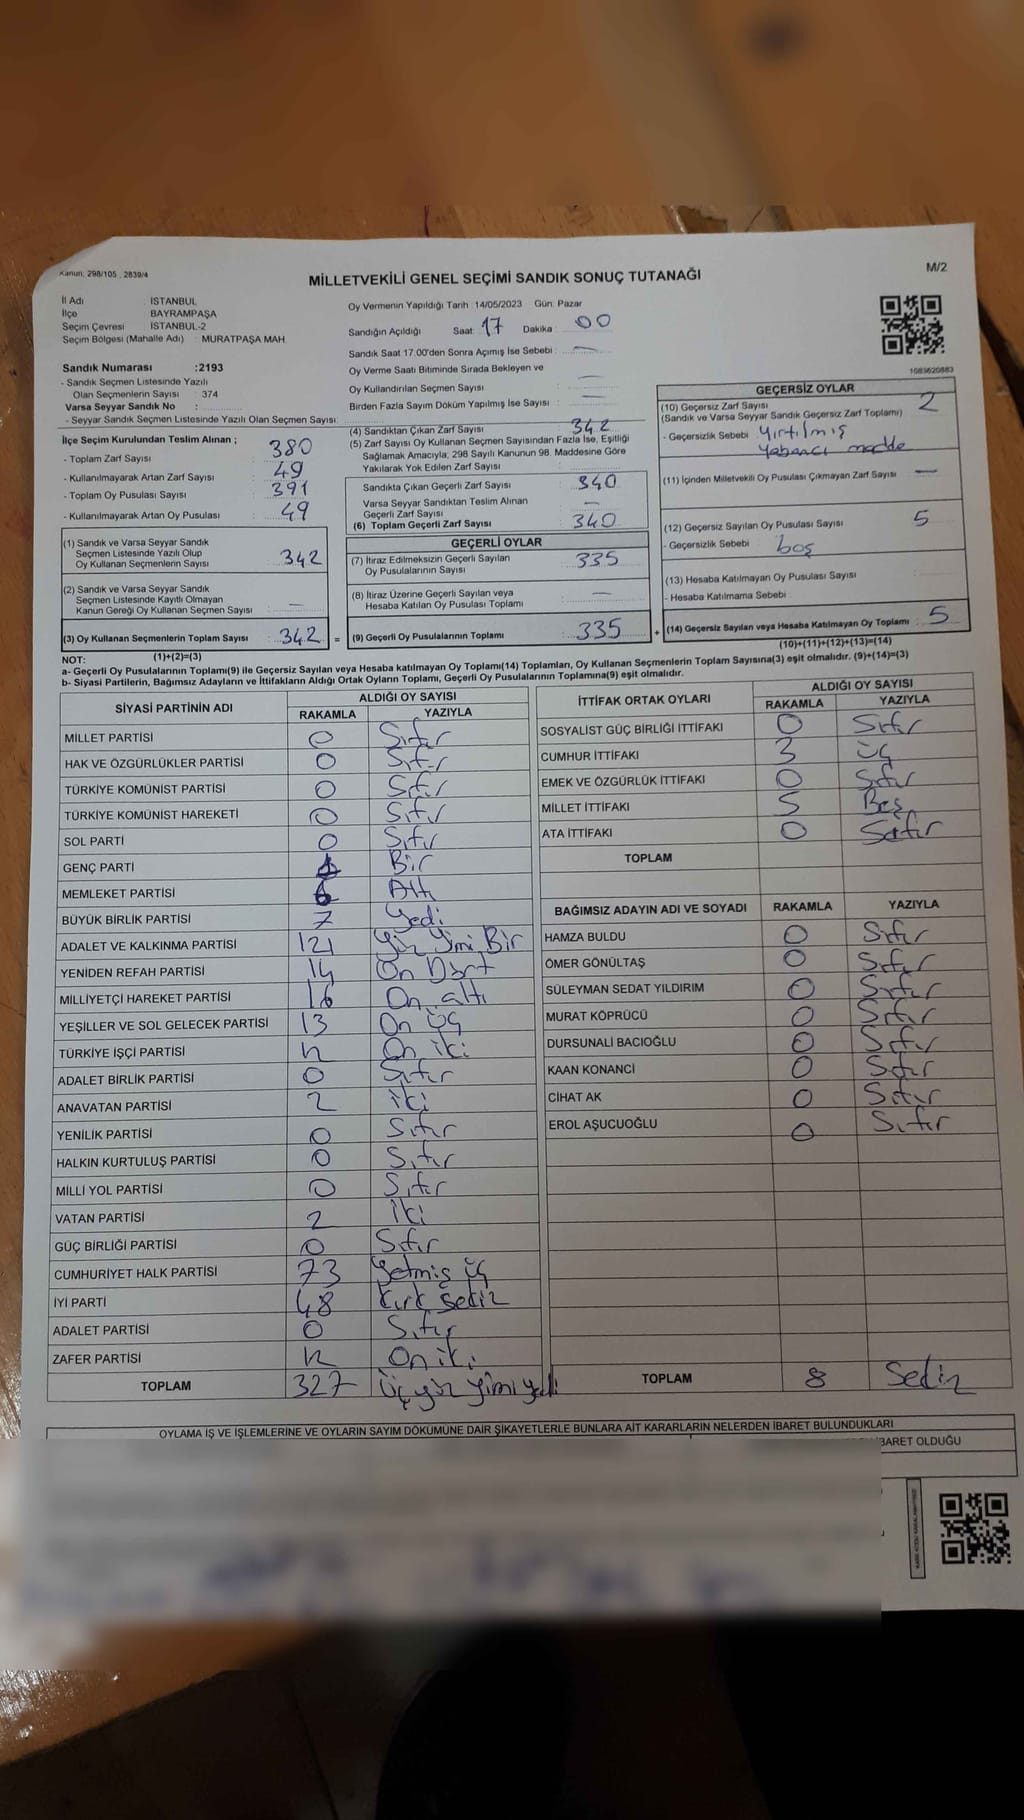 Kanun: 298/105 , 2839/4
M/2
MİLLETVEKİLİ GENEL SEÇİMİ SANDIK SONUÇ TUTANAĞI
İl Adı İSTANBUL
İlçe BAYRAMPAŞA
Seçim Çevresi İSTANBUL-2
Seçim Bölgesi (Mahalle Adı) MURATPAŞA MAH.
Sandık Numarası :2193
- Sandık Seçmen Listesinde Yazılı
Olan Seçmenlerin Sayısı : 374
Varsa Seyyar Sandık No :
- Seyyar Sandık Seçmen Listesinde Yazılı Olan Seçmen Sayısı :
İlçe Seçim Kurulundan Teslim Alınan ;
- Toplam Zarf Sayısı : 380
- Kullanılmayarak Artan Zarf Sayısı : 49
- Toplam Oy Pusulası Sayısı : 391
- Kullanılmayarak Artan Oy Pusulası : 49
(1) Sandık ve Varsa Seyyar Sandık
Seçmen Listesinde Yazılı Olup
Oy Kullanan Seçmenlerin Sayısı : 342
(2) Sandık ve Varsa Seyyar Sandık
Seçmen Listesinde Kayıtlı Olmayan
Kanun Gereği Oy Kullanan Seçmen Sayısı : —
(3) Oy Kullanan Seçmenlerin Toplam Sayısı : 342 =
(1)+(2)=(3)
Oy Vermenin Yapıldığı Tarih :14/05/2023 Gün: Pazar
Sandığın Açıldığı Saat: 17 Dakika : 00
Sandık Saat 17.00'den Sonra Açımış İse Sebebi : —
Oy Verme Saati Bitiminde Sırada Bekleyen ve
Oy Kullandırılan Seçmen Sayısı : —
Birden Fazla Sayım Döküm Yapılmış İse Sayısı : —
(4) Sandıktan Çıkan Zarf Sayısı : 342
(5) Zarf Sayısı Oy Kullanan Seçmen Sayısından Fazla İse, Eşitliği
Sağlamak Amacıyla; 298 Sayılı Kanunun 98. Maddesine Göre
Yakılarak Yok Edilen Zarf Sayısı :
Sandıkta Çıkan Geçerli Zarf Sayısı : 340
Varsa Seyyar Sandıktan Teslim Alınan
Geçerli Zarf Sayısı : —
(6) Toplam Geçerli Zarf Sayısı : 340
GEÇERLİ OYLAR
(7) İtiraz Edilmeksizin Geçerli Sayılan
Oy Pusulalarının Sayısı : 335
(8) İtiraz Üzerine Geçerli Sayılan veya
Hesaba Katılan Oy Pusulası Toplamı : —
(9) Geçerli Oy Pusulalarının Toplamı : 335 +
1083620883
GEÇERSİZ OYLAR
(10) Geçersiz Zarf Sayısı : 2
(Sandık ve Varsa Seyyar Sandık Geçersiz Zarf Toplamı)
- Geçersizlik Sebebi : Yırtılmış
yabancı madde
(11) İçinden Milletvekili Oy Pusulası Çıkmayan Zarf Sayısı : —
(12) Geçersiz Sayılan Oy Pusulası Sayısı : 5
- Geçersizlik Sebebi : boş
(13) Hesaba Katılmayan Oy Pusulası Sayısı :
- Hesaba Katılmama Sebebi :
(14) Geçersiz Sayılan veya Hesaba Katılmayan Oy Toplamı : 5
(10)+(11)+(12)+(13)=(14)
NOT:
a- Geçerli Oy Pusulalarının Toplamı(9) ile Geçersiz Sayılan veya Hesaba katılmayan Oy Toplamı(14) Toplamları, Oy Kullanan Seçmenlerin Toplam Sayısına(3) eşit olmalıdır. (9)+(14)=(3)
b- Siyasi Partilerin, Bağımsız Adayların ve İttifakların Aldığı Ortak Oyların Toplamı, Geçerli Oy Pusulalarının Toplamına(9) eşit olmalıdır.
SİYASİ PARTİNİN ADI ALDIĞI OY SAYISI
RAKAMLA YAZIYLA
MİLLET PARTİSİ 0 Sıfır
HAK VE ÖZGÜRLÜKLER PARTİSİ 0 Sıfır
TÜRKİYE KOMÜNİST PARTİSİ 0 Sıfır
TÜRKİYE KOMÜNİST HAREKETİ 0 Sıfır
SOL PARTİ 0 Sıfır
GENÇ PARTİ 1 Bir
MEMLEKET PARTİSİ 6 Altı
BÜYÜK BİRLİK PARTİSİ 7 Yedi
ADALET VE KALKINMA PARTİSİ 121 Yüz Yimi Bir
YENİDEN REFAH PARTİSİ 14 On Dört
MİLLİYETÇİ HAREKET PARTİSİ 16 On altı
YEŞİLLER VE SOL GELECEK PARTİSİ 13 On üç
TÜRKİYE İŞÇİ PARTİSİ 12 On iki
ADALET BİRLİK PARTİSİ 0 Sıfır
ANAVATAN PARTİSİ 2 iki
YENİLİK PARTİSİ 0 Sıfır
HALKIN KURTULUŞ PARTİSİ 0 Sıfır
MİLLİ YOL PARTİSİ 0 Sıfır
VATAN PARTİSİ 2 İki
GÜÇ BİRLİĞİ PARTİSİ 0 Sıfır
CUMHURİYET HALK PARTİSİ 73 Yetmiş üç
İYİ PARTİ 48 Kırk sekiz
ADALET PARTİSİ 0 Sıfır
ZAFER PARTİSİ 12 On iki
TOPLAM 327 Üçyüz yimi yedi
İTTİFAK ORTAK OYLARI ALDIĞI OY SAYISI
RAKAMLA YAZIYLA
SOSYALİST GÜÇ BİRLİĞİ İTTİFAKI 0 Sıfır
CUMHUR İTTİFAKI 3 üç
EMEK VE ÖZGÜRLÜK İTTİFAKI 0 Sıfır
MİLLET İTTİFAKI 5 Beş
ATA İTTİFAKI 0 Sıfır
TOPLAM
BAĞIMSIZ ADAYIN ADI VE SOYADI RAKAMLA YAZIYLA
HAMZA BULDU 0 Sıfır
ÖMER GÖNÜLTAŞ 0 Sıfır
SÜLEYMAN SEDAT YILDIRIM 0 Sıfır
MURAT KÖPRÜCÜ 0 Sıfır
DURSUNALİ BACIOĞLU 0 Sıfır
KAAN KONANCİ 0 Sıfır
CİHAT AK 0 Sıfır
EROL AŞUCUOĞLU 0 Sıfır
TOPLAM 8 Sekiz
OYLAMA İŞ VE İŞLEMLERİNE VE OYLARIN SAYIM DÖKÜMÜNE DAİR ŞİKAYETLERLE BUNLARA AİT KARARLARIN NELERDEN İBARET BULUNDUKLARI
İBARET OLDUĞU